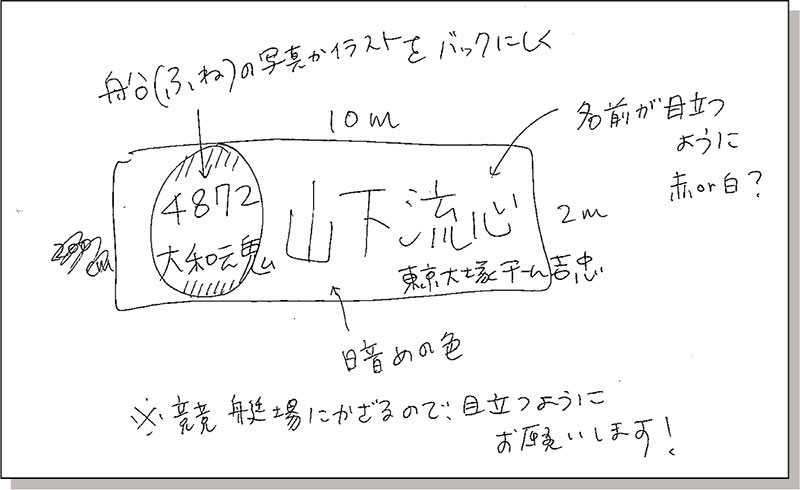 船台(ふね)の写真かイラストをバックにしく
10m
名前が目立つ
ように
赤or白?
4872
大和魂
山下流心
2m
東京大塚チーム吉忠
暗めの色
※競艇場にかざるので、目立つように
お願いします!